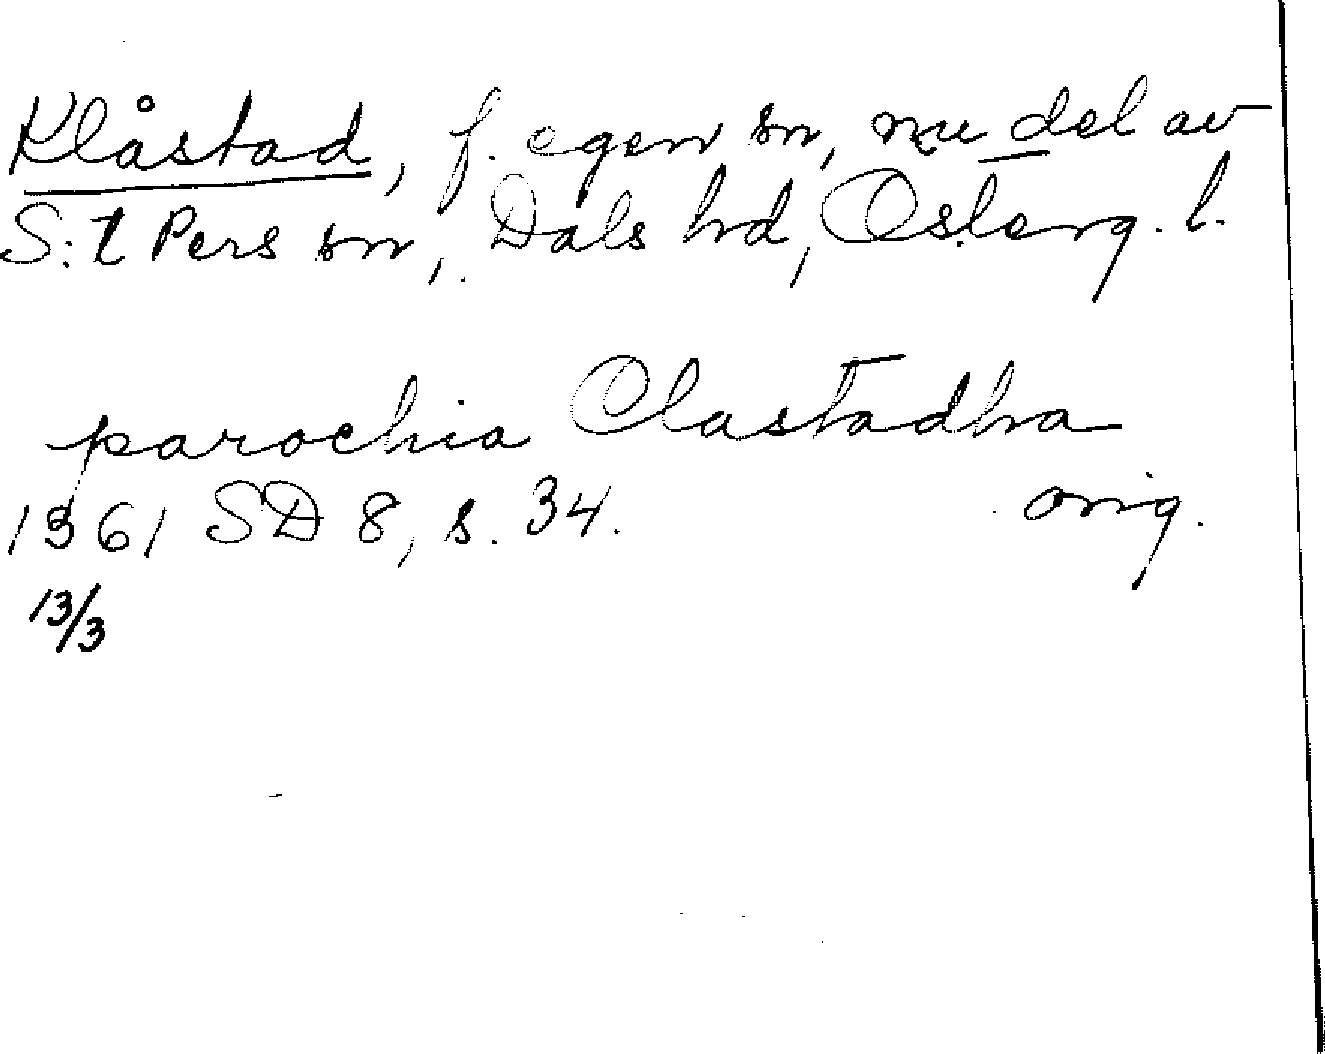 Klåstad, f. egen sn, nu del av
S:t Pers sn, Dals hd, Österg. l.
parochia Clastadha
1361 SD 8, s. 34. orig.
13/3